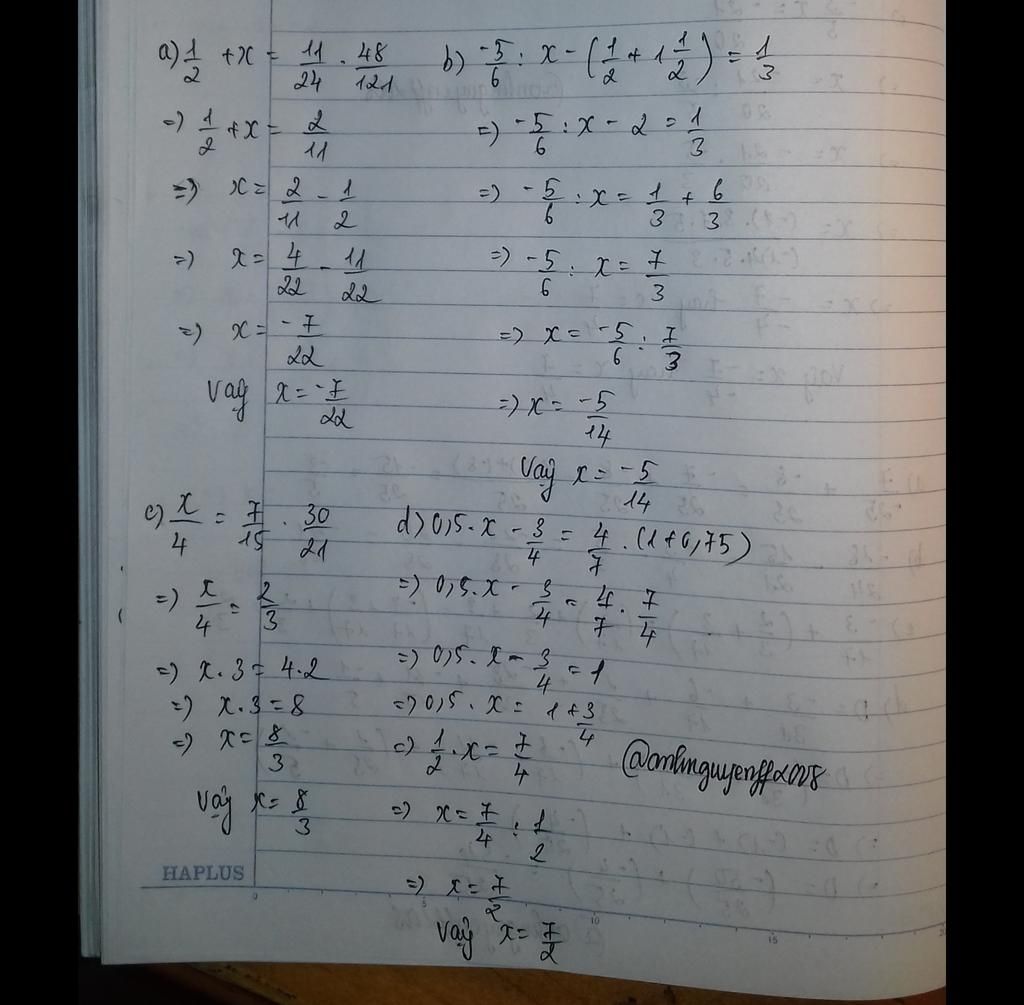 a) 1/2 + x = 11/24 . 48/121
=) 1/2 + x = 2/11
=) x = 2/11 - 1/2
=) x = 4/22 - 11/22
=) x = -7/22
Vậy x = -7/22
b) -5/6 : x - (1/2 + 1 1/2) = 1/3
=) -5/6 : x - 2 = 1/3
=) -5/6 : x = 1/3 + 6/3
=) -5/6 : x = 7/3
=) x = -5/6 : 7/3
=) x = -5/14
Vậy x = -5/14
c) x/4 = 7/15 . 30/21
=) x/4 = 2/3
=) x . 3 = 4 . 2
=) x . 3 = 8
=) x = 8/3
Vậy x = 8/3
d) 0,5 . x - 3/4 = 4/7 . (1 + 0,75)
=) 0,5 . x - 3/4 = 4/7 . 7/4
=) 0,5 . x - 3/4 = 1
=) 0,5 . x = 1 + 3/4
=) 1/2 . x = 7/4
=) x = 7/4 : 1/2
=) x = 7/2
Vậy x = 7/2
HAPLUS
0 5 10 15